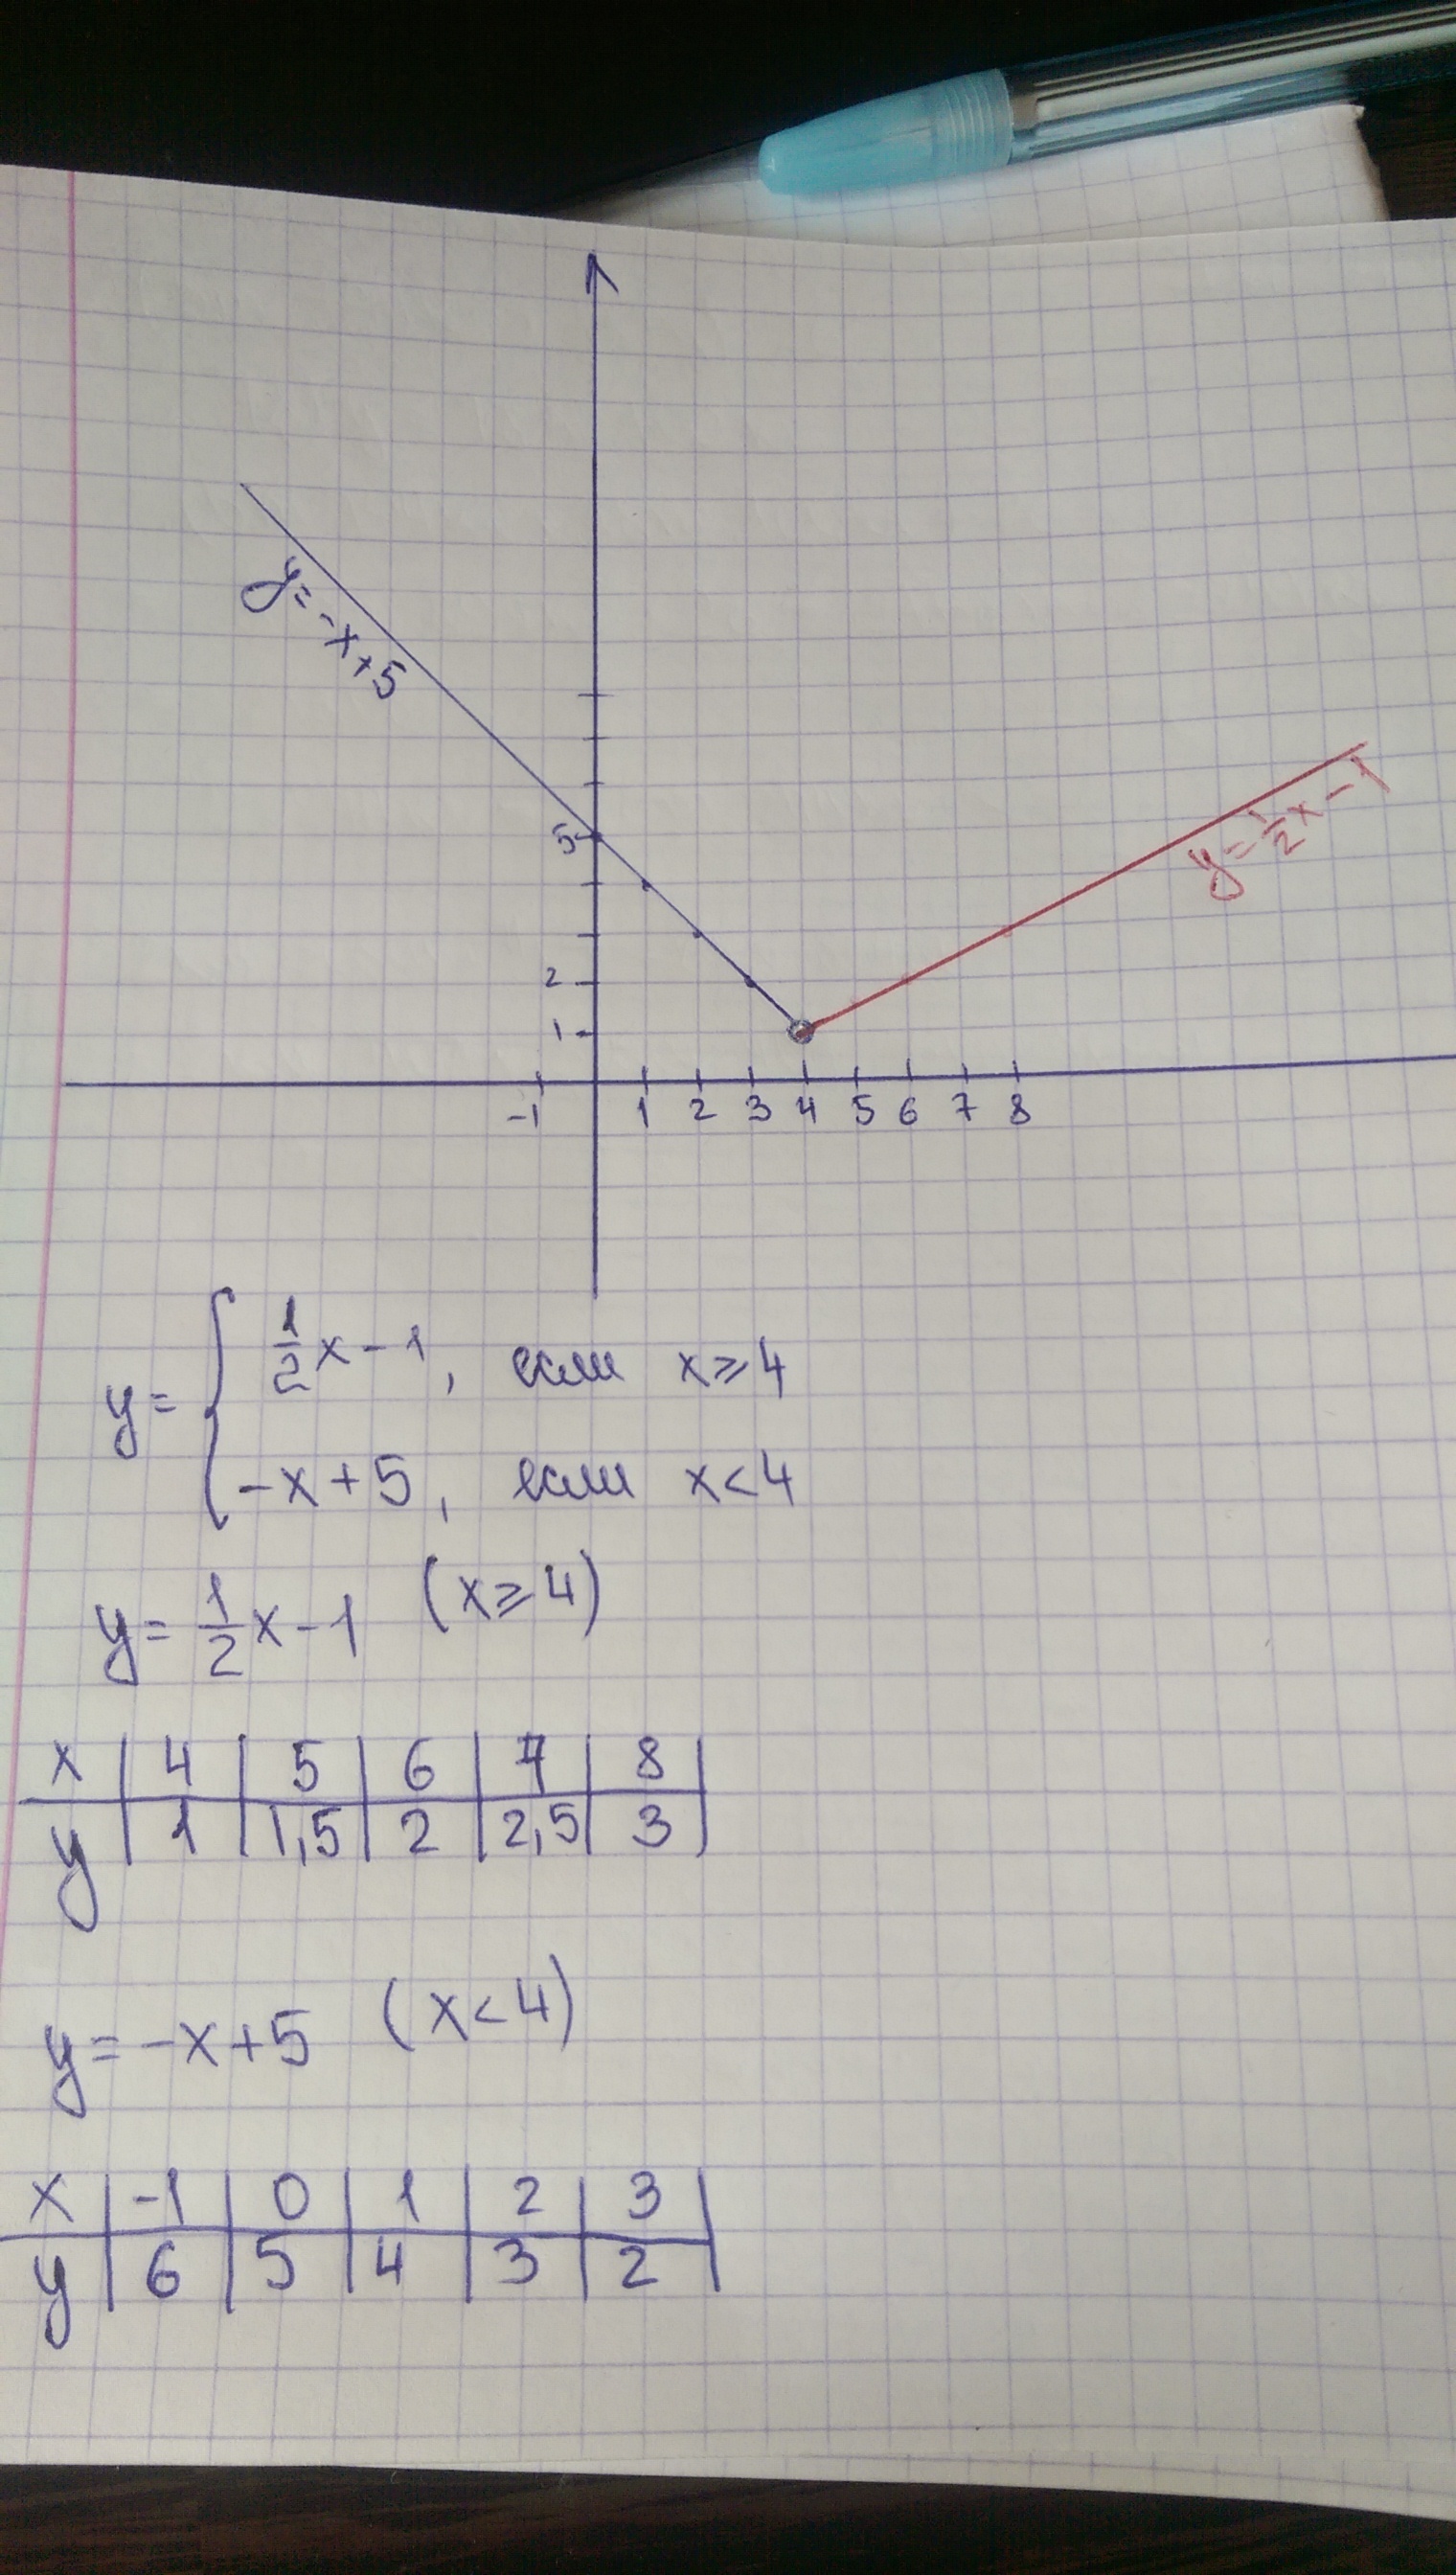 y=-x+5
y=1/2x-1
5
2
1
-1 1 2 3 4 5 6 7 8
y= { 1/2x-1, если x≥4
-x+5, если x<4
y=1/2x-1 (x≥4)
x | 4 | 5 | 6 | 7 | 8 |
y | 1 | 1,5 | 2 | 2,5 | 3 |
y=-x+5 (x<4)
x | -1 | 0 | 1 | 2 | 3 |
y | 6 | 5 | 4 | 3 | 2 |